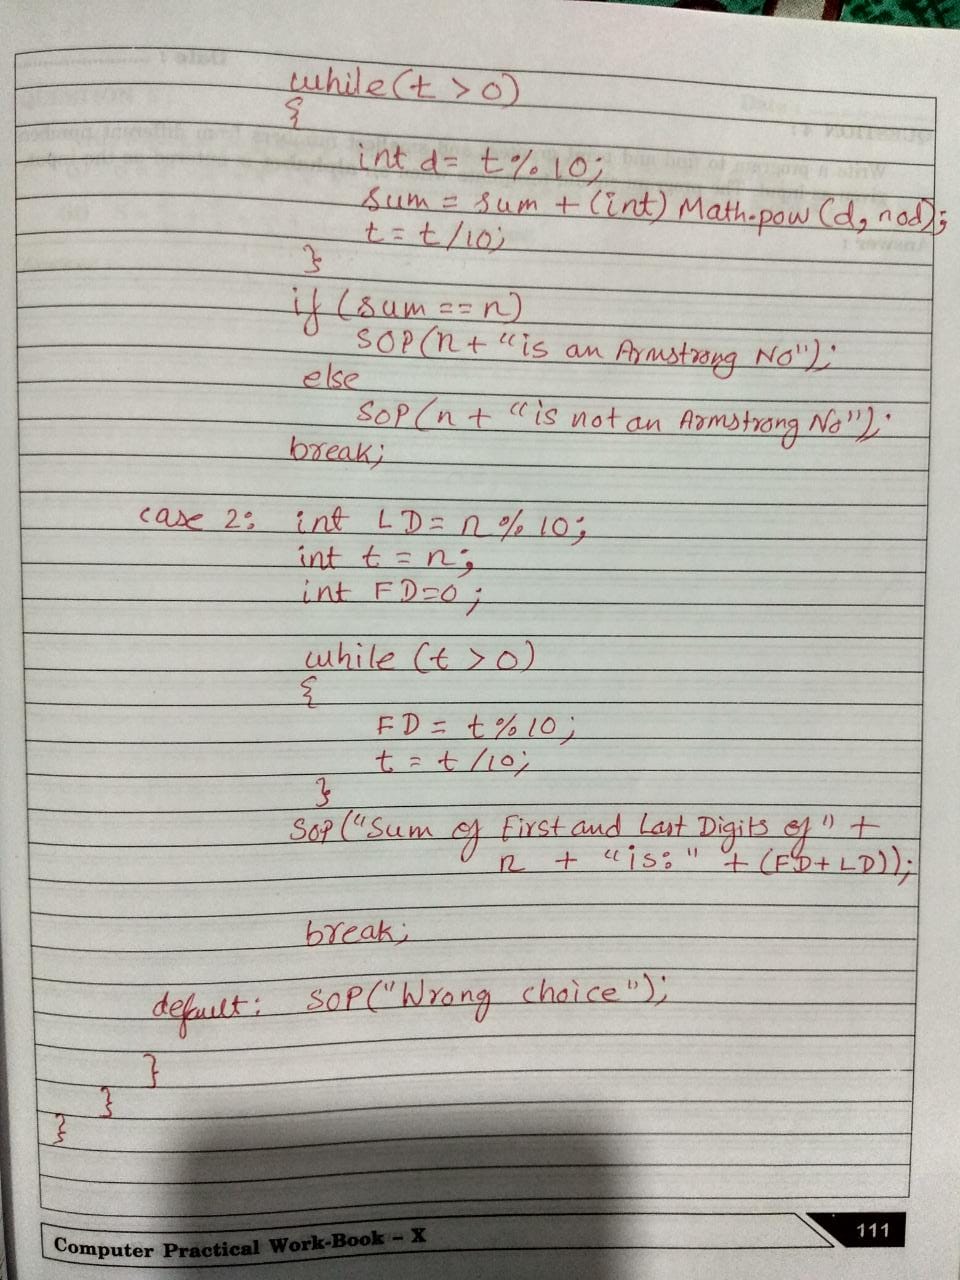 while(t > 0)
{
int d= t%10;
sum = sum + (int) Math.pow(d, nod);
t= t/10;
}
if (sum == n)
SOP(n+ "is an Armstrong No");
else
SOP(n + "is not an Armstrong No");
break;
case 2: int LD= n%10;
int t = n;
int FD=0;
while (t > 0)
{
FD = t%10;
t = t/10;
}
SOP("Sum of First and Last Digits of" +
n + "is:" + (FD+LD));
break;
default: SOP("Wrong choice");
}
}
}
Computer Practical Work-Book – X
111